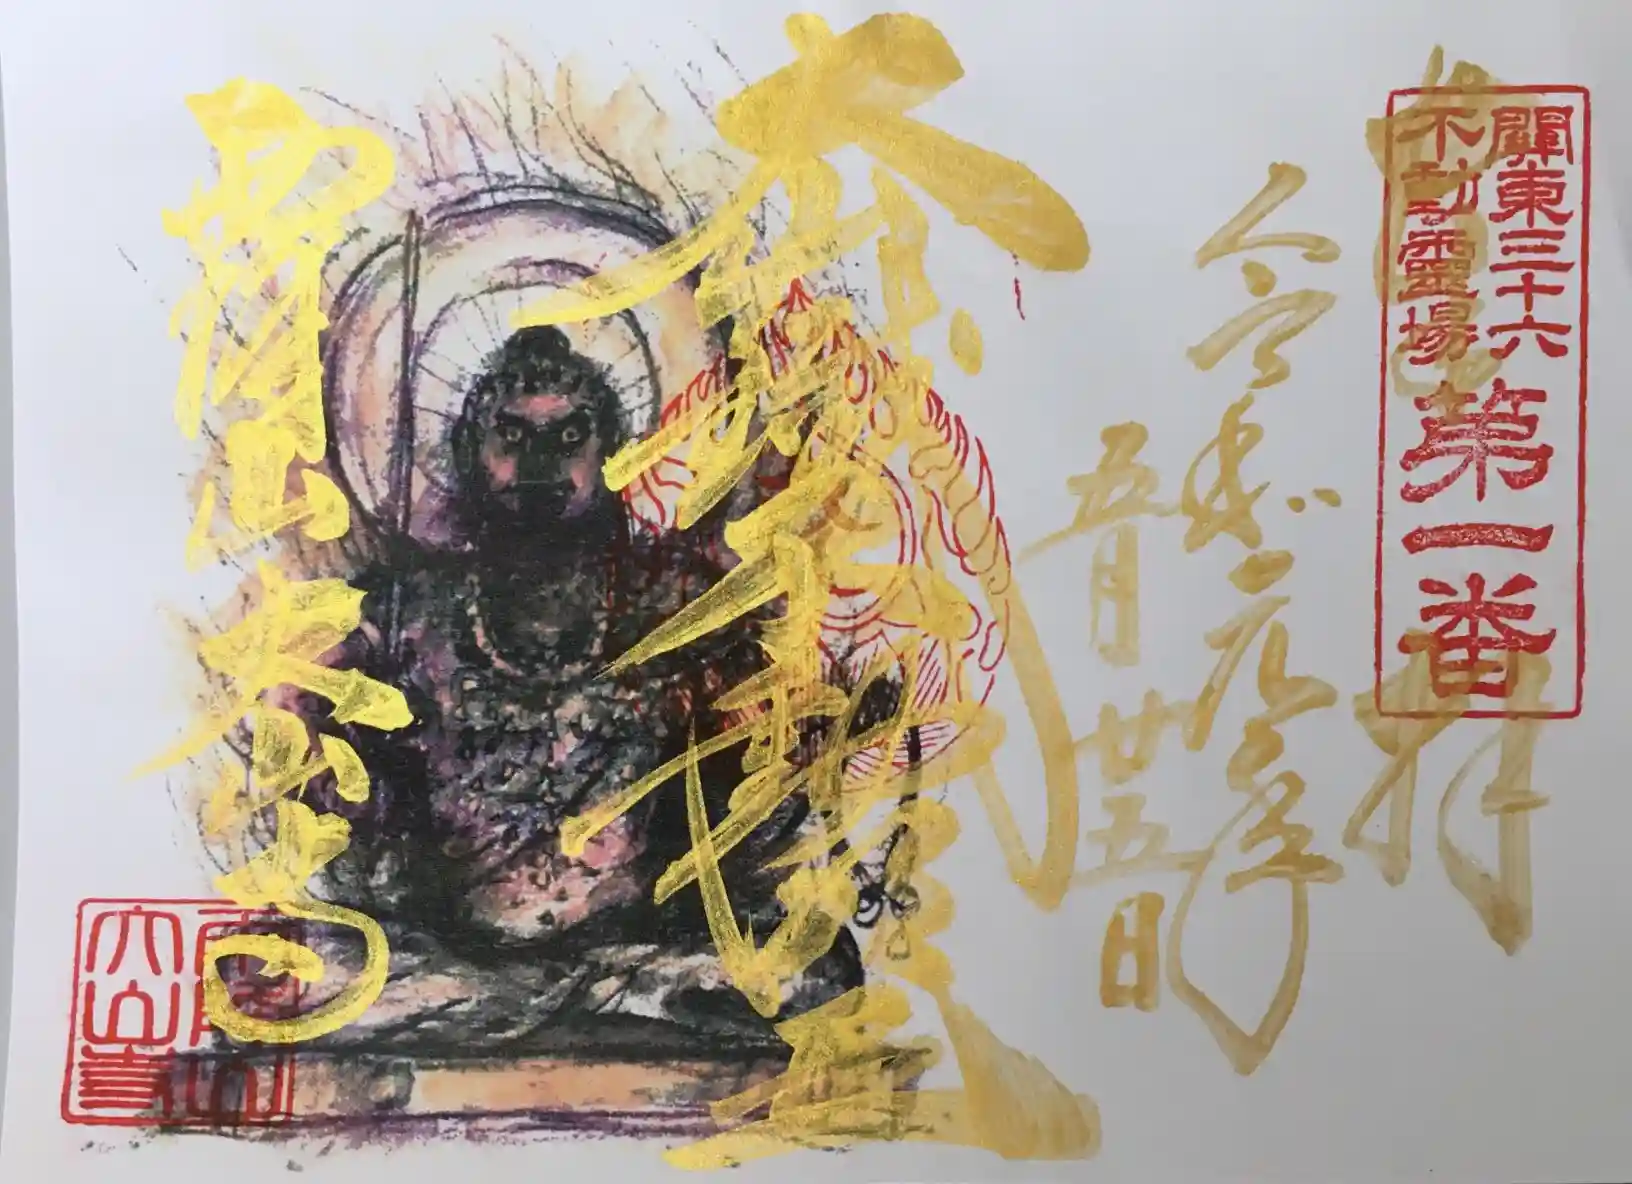 關東三十六
不動靈場
第一番
奉拝
令和元年
五月廿五日
不動明王
雨降山大山寺
雨降山
大山寺